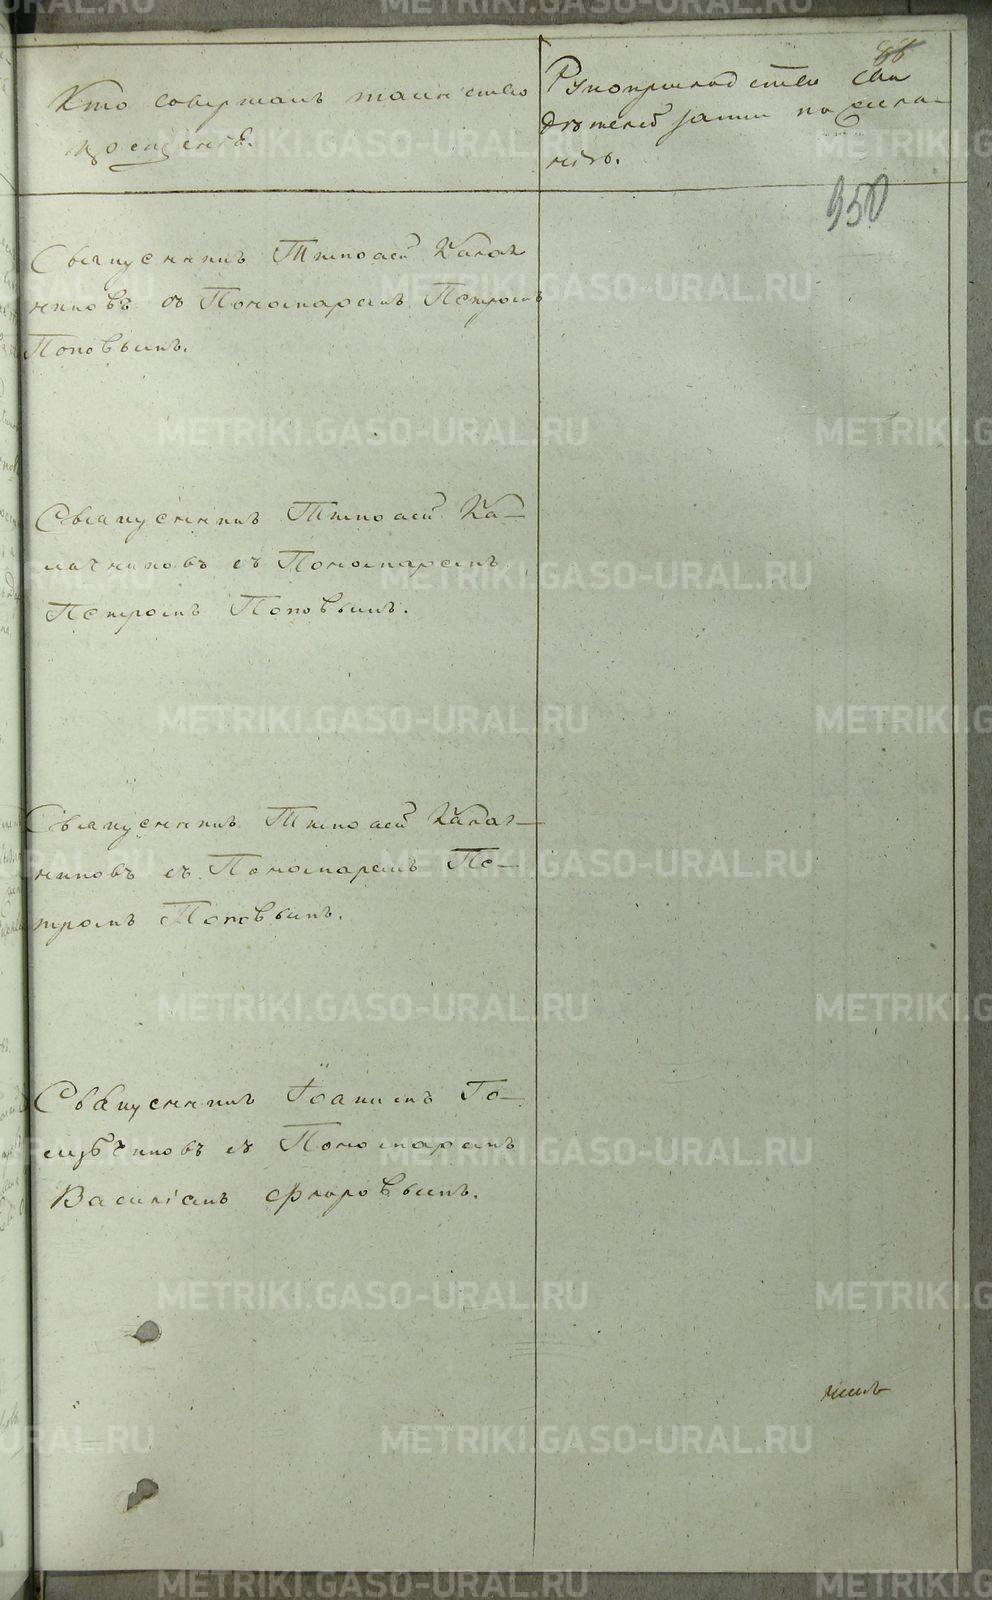 88
Кто совершалъ таинство
крещенiя.
Рукоприкладство сви
дѣтелей записи по жела-
нiю.
950
Священникъ Тимофей Калач
никовъ съ Пономаремъ Петромъ
Поповымъ.
Священникъ Тимофей Ка-
лачниковъ съ Пономаремъ
Петромъ Поповымъ.
Священникъ Тимофей Калач-
никовъ съ Пономаремъ Пе-
тромъ Поповымъ.
Священникъ Iоаннъ Го-
лубчиковъ съ Пономаремъ
Василiемъ Флоровымъ.
METRIKI.GASO-URAL.RU